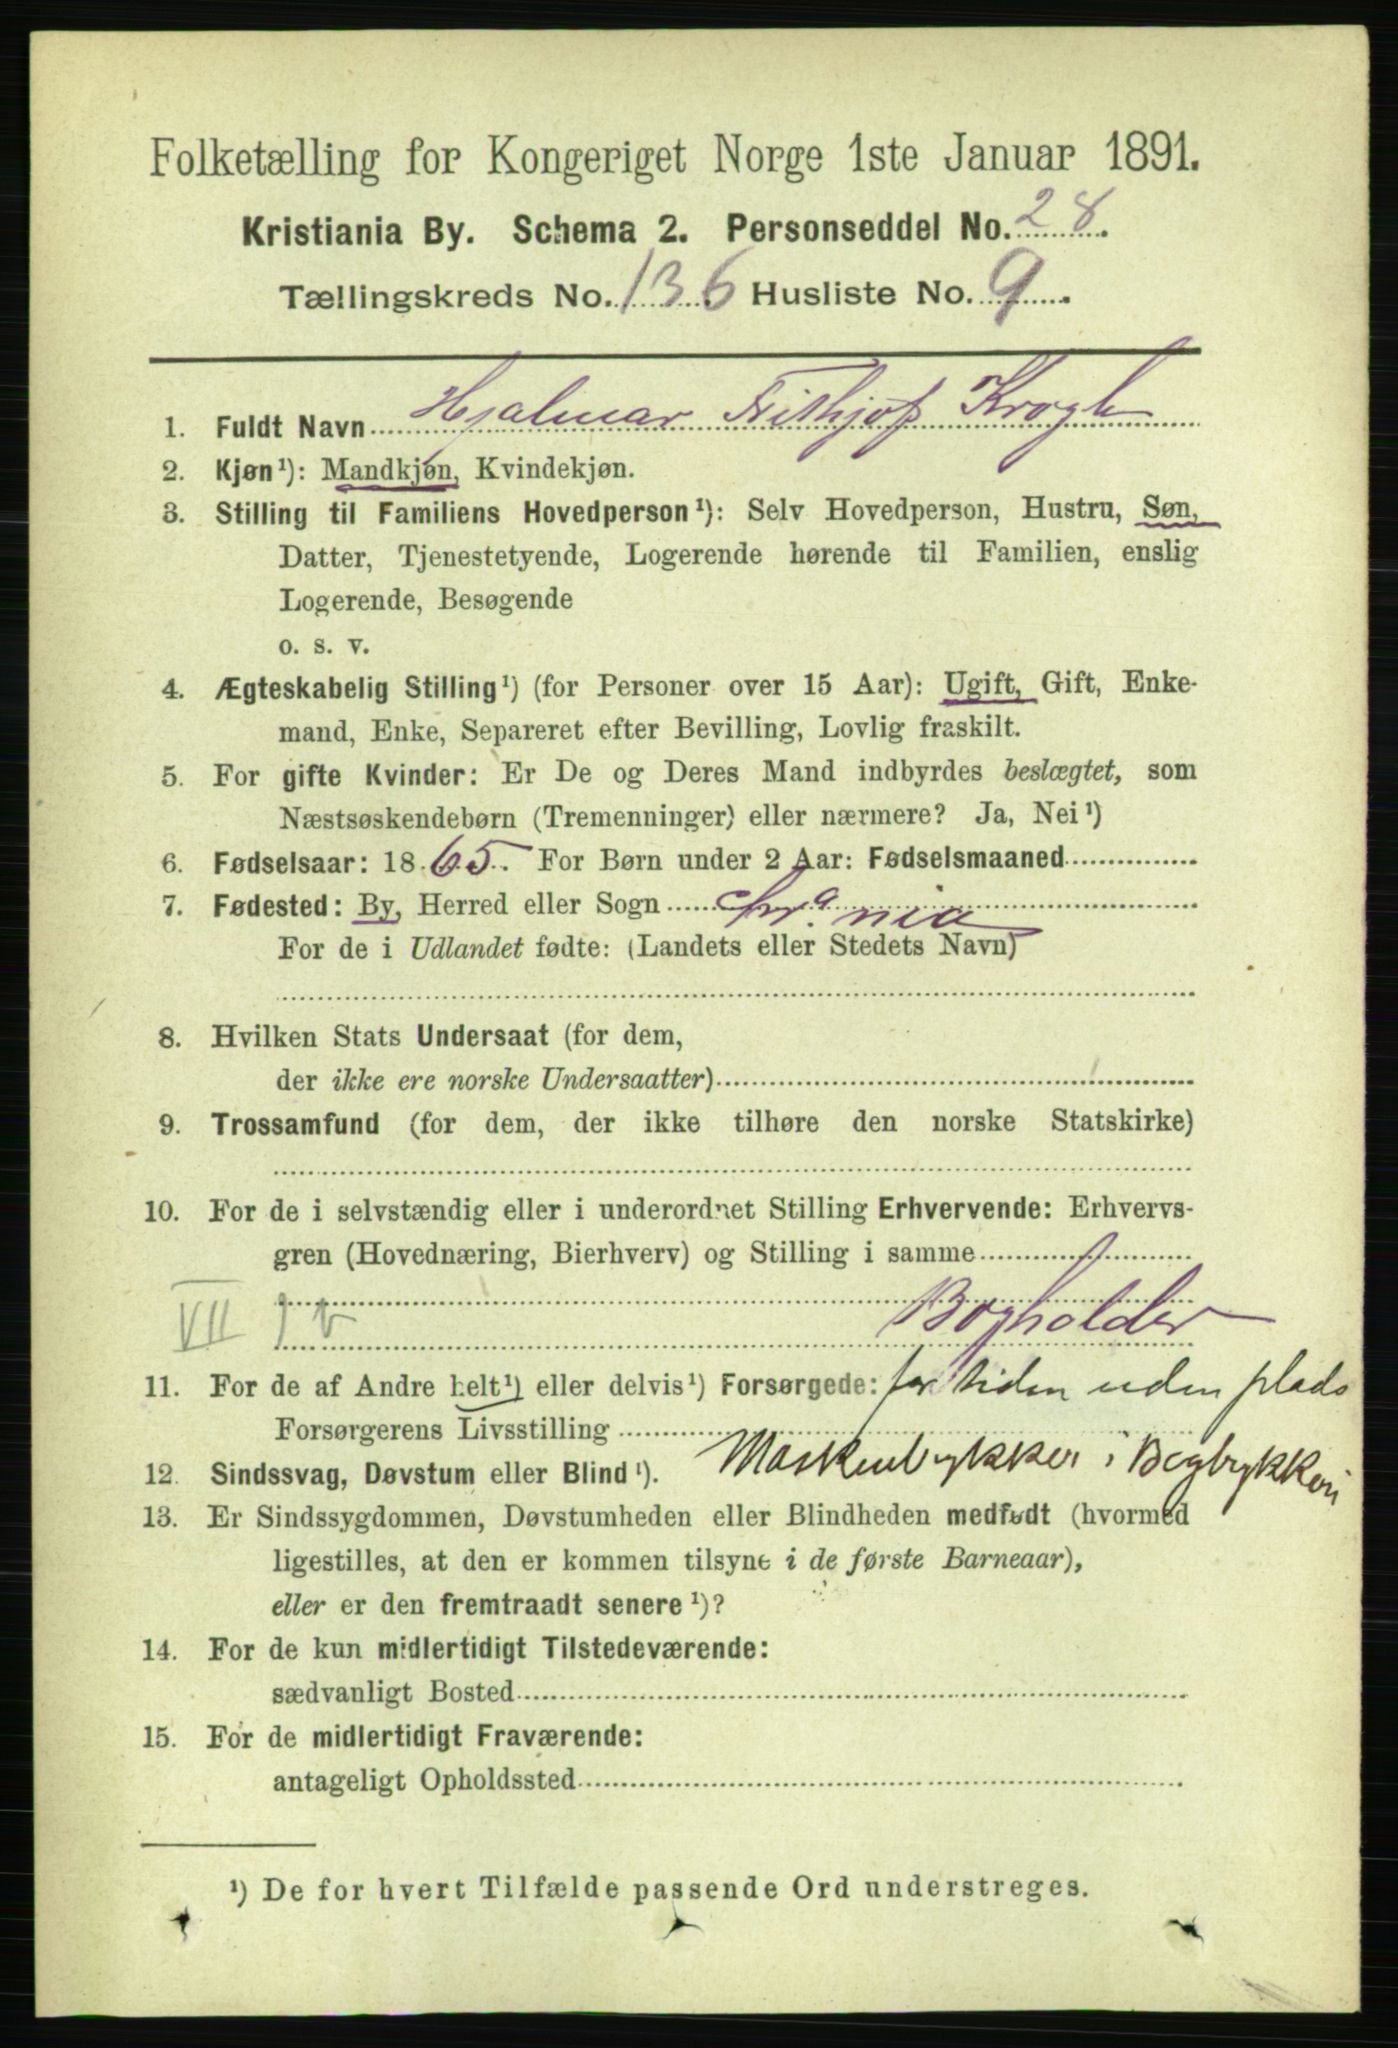 Folketælling for Kongeriget Norge 1ste Januar 1891.
Kristiania By. Schema 2. Personseddel No. 28.
Tællingskreds No. 136 Husliste No. 9.
1. Fuldt Navn Hjalmar Frithjof Krogh
2. Kjøn¹): Mandkjøn, Kvindekjøn.
3. Stilling til Familiens Hovedperson¹): Selv Hovedperson, Hustru, Søn,
Datter, Tjenestetyende, Logerende hørende til Familien, enslig
Logerende, Besøgende
o. s. v.
4. Ægteskabelig Stilling¹) (for Personer over 15 Aar): Ugift, Gift, Enke-
mand, Enke, Separeret efter Bevilling, Lovlig fraskilt.
5. For gifte Kvinder: Er De og Deres Mand indbyrdes beslægtet, som
Næstsøskendebørn (Tremenninger) eller nærmere? Ja, Nei¹)
6. Fødselsaar: 1865. For Børn under 2 Aar: Fødselsmaaned
7. Fødested: By, Herred eller Sogn Chr.a nia
For de i Udlandet fødte: (Landets eller Stedets Navn)
8. Hvilken Stats Undersaat (for dem,
der ikke ere norske Undersaatter)
9. Trossamfund (for dem, der ikke tilhøre den norske Statskirke)
10. For de i selvstændig eller i underordnet Stilling Erhvervende: Erhvervs-
gren (Hovednæring, Bierhverv) og Stilling i samme
VII Bogholder
11. For de af Andre helt¹) eller delvis¹) Forsørgede: for tiden uden plads
Forsørgerens Livsstilling
Maskenbrykker i Bogbrykkeri
12. Sindssvag, Døvstum eller Blind¹).
13. Er Sindssygdommen, Døvstumheden eller Blindheden medfødt (hvormed
ligestilles, at den er kommen tilsyne i de første Barneaar),
eller er den fremtraadt senere¹)?
14. For de kun midlertidigt Tilstedeværende:
sædvanligt Bosted
15. For de midlertidigt Fraværende:
antageligt Opholdssted
¹) De for hvert Tilfælde passende Ord understreges.